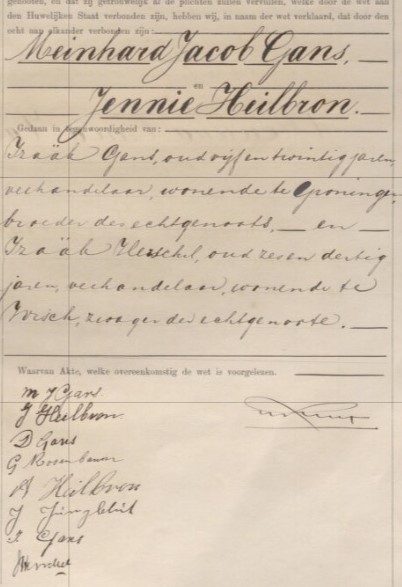 genooten, en dat zij getrouwelijk al de plichten zullen vervullen, welke door de wet aan
den Huwelijken Staat verbonden zijn, hebben wij, in naam der wet verklaard, dat door den
echt aan elkander verbonden zijn:
Meinhard Jacob Gans,
en
Jennie Heilbron.
Gedaan in tegenwoordigheid van:
Izaäk Gans, oud vijf en twintig jaren,
veehandelaar, wonende te Groningen,
broeder des echtgenoots, — en —
Izaäk Herschel, oud zes en dertig
jaren, veehandelaar, wonende te
Wisch, zwager der echtgenoote. —
Waarvan Akte, welke overeenkomstig de wet is voorgelezen.
M J Gans
J Heilbron
D Gans
G Rosenbaum
A Heilbron
J Jüngblüt
I Gans
Herschel